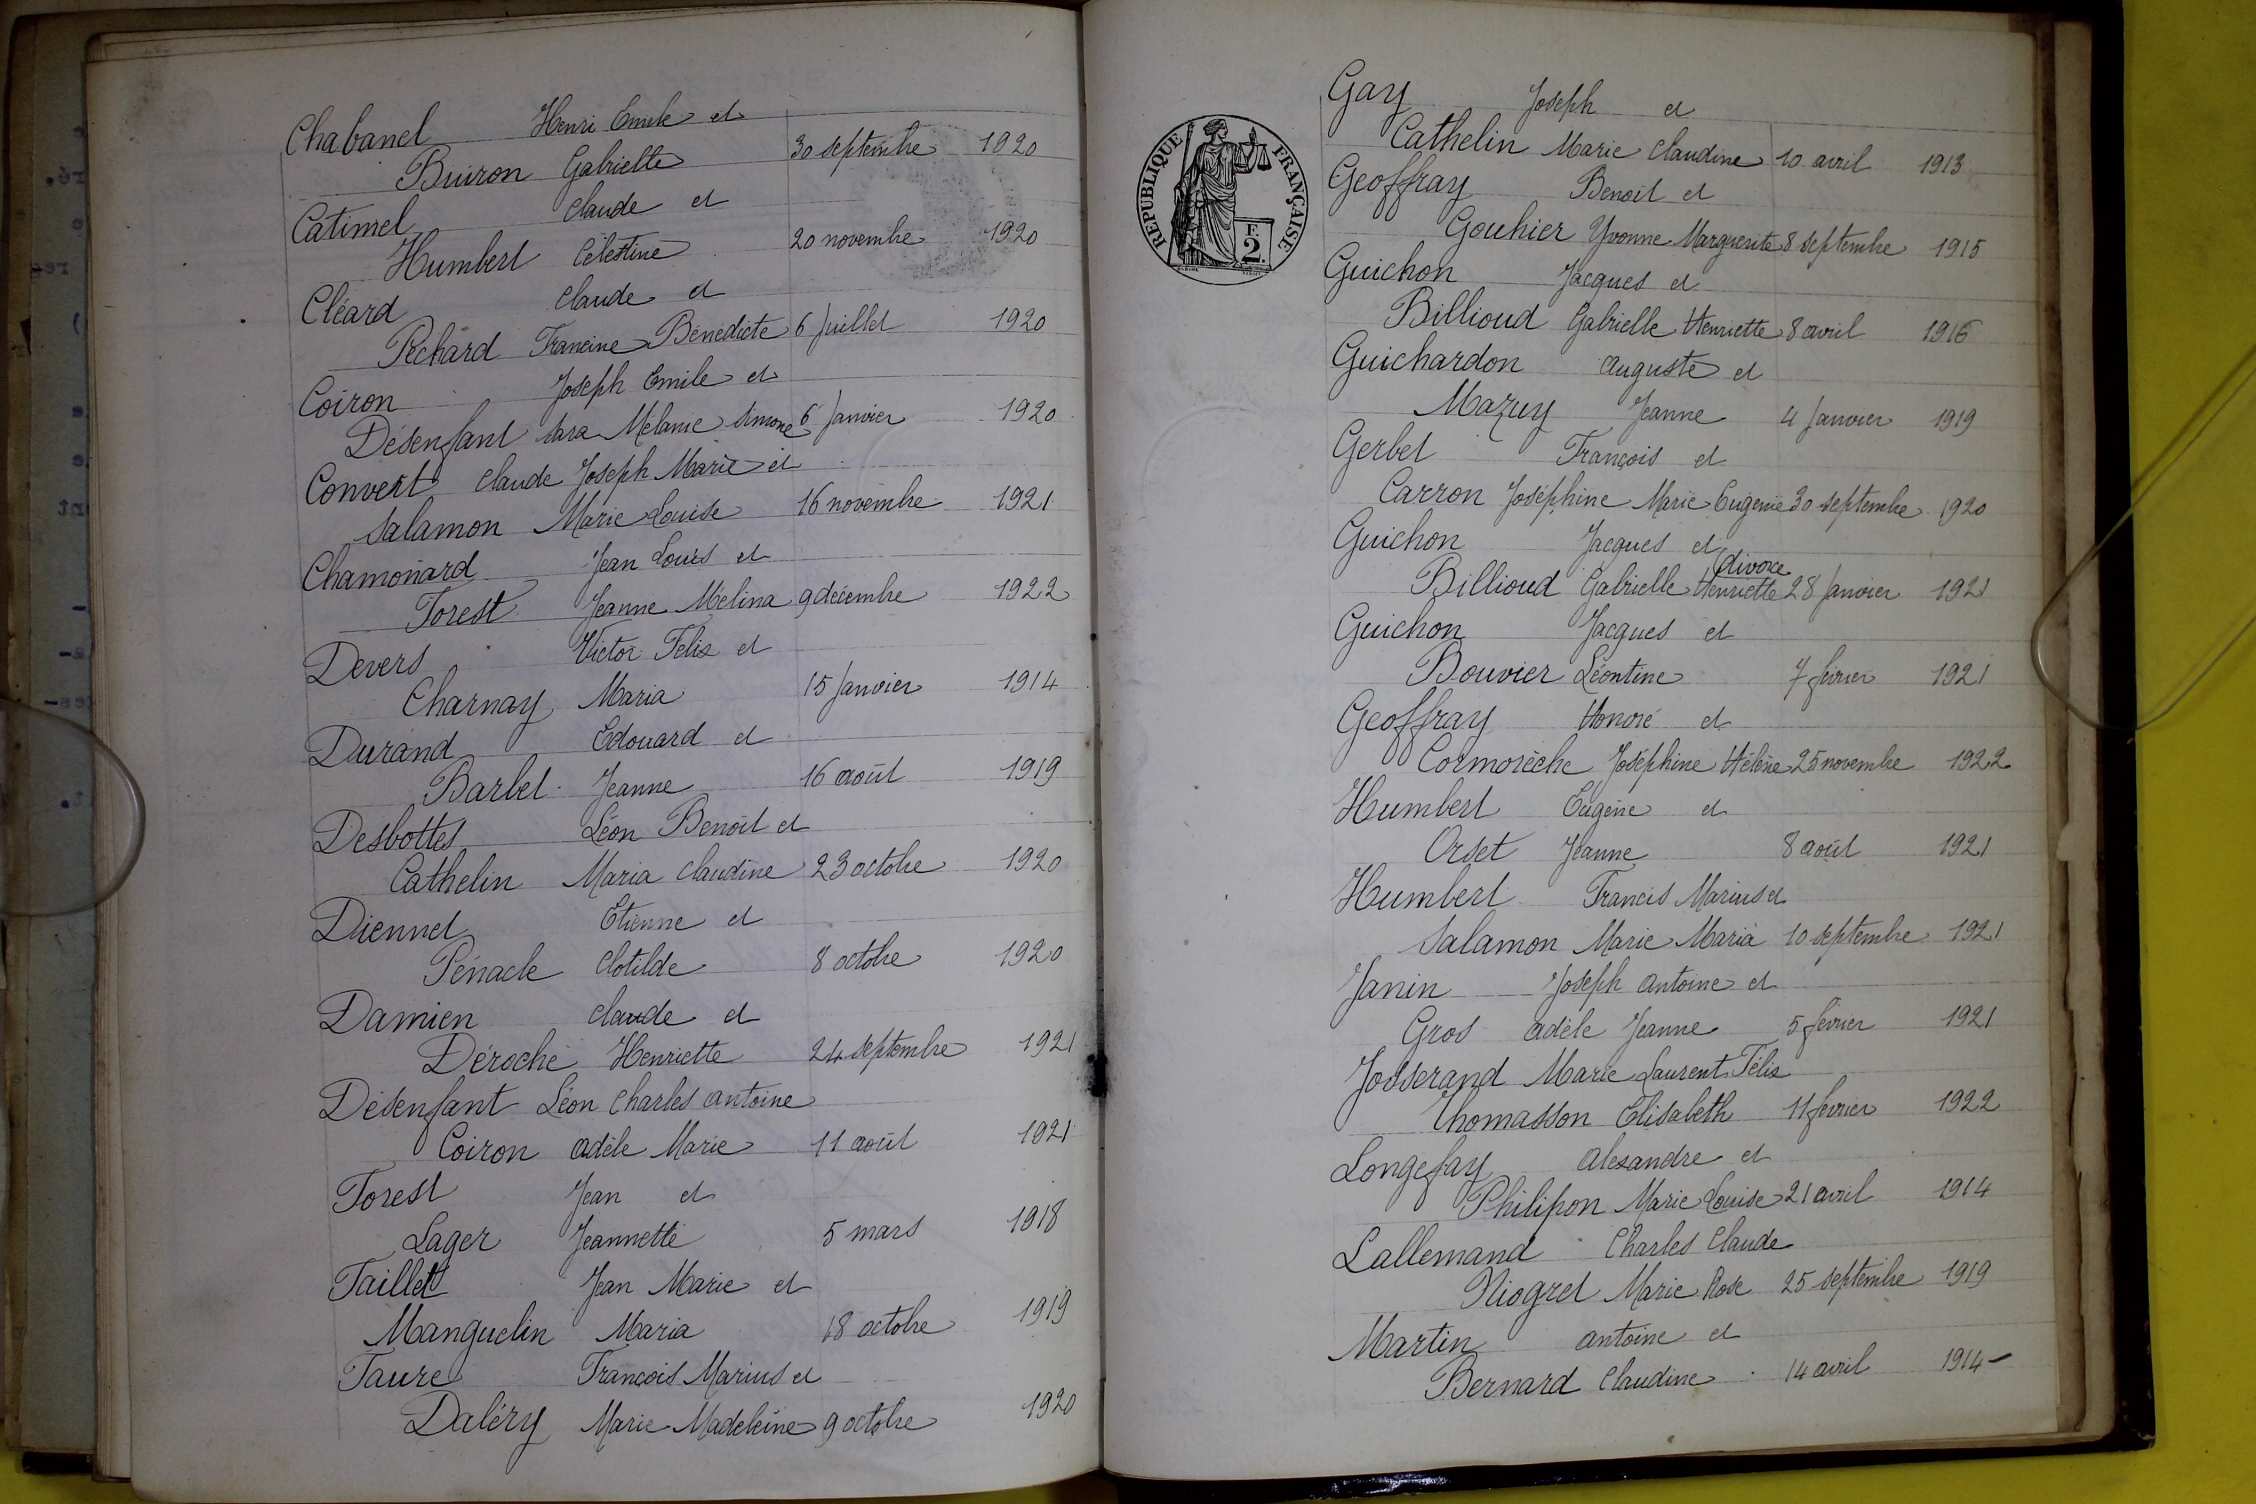 Chabanel Henri Emile et
Buiron Gabrielle 30 septembre 1920
Catimel Claude et
Humbert Célestine 20 novembre 1920
Cléard Claude et
Pechard Francine Bénédicte 6 Juillet 1920
Coiron Joseph Emile et
Désenfant Sara Mélanie Simone 6 Janvier 1920
Convert Claude Joseph Marie et
Salamon Marie Louise 16 novembre 1921
Chamonard Jean Louis et
Forest Jeanne Mélina 9 décembre 1922
Devers Victor Félix et
Charnay Maria 15 Janvier 1914
Durand Edouard et
Barbet Jeanne 16 août 1919
Desbottes Léon Benoît et
Cathelin Maria Claudine 23 octobre 1920
Diennet Etienne et
Pénacle Clotilde 8 octobre 1920
Damien Claude et
Déroche Henriette 24 septembre 1921
Désenfant Léon Charles Antoine
Coiron Adèle Marie 11 août 1921
Forest Jean et
Lager Jeannette 5 mars 1918
Faillet Jean Marie et
Manguelin Maria 18 octobre 1919
Faure François Marius et
Daléry Marie Madeleine 9 octobre 1920
REPUBLIQUE FRANÇAISE
F.
2.
Gay Joseph et
Cathelin Marie Claudine 10 avril 1913
Geoffray Benoit et
Gouhier Yvonne Marguerite 8 septembre 1915
Guichon Jacques et
Billioud Gabrielle Henriette 8 avril 1916
Guichardon Auguste et
Mazuy Jeanne 4 Janvier 1919
Gerbet François et
Carron Joséphine Marie Eugénie 30 septembre 1920
Guichon Jacques et
divorce
Billioud Gabrielle Henriette 28 Janvier 1921
Guichon Jacques et
Bouvier Léontine 7 février 1921
Geoffray Honoré et
Cormorèche Joséphine Hélène 25 novembre 1922
Humbert Eugène et
Orset Jeanne 8 août 1921
Humbert Francis Marius et
Salamon Marie Maria 10 septembre 1921
Janin Joseph Antoine et
Gros Adèle Jeanne 5 février 1921
Josserand Marie Laurent Félix
Thomasson Elisabeth 11 février 1922
Longefay Alexandre et
Philipon Marie Louise 21 avril 1914
Lallemand Charles Claude
Niogret Marie Rose 25 septembre 1919
Martin Antoine et
Bernard Claudine 14 avril 1914